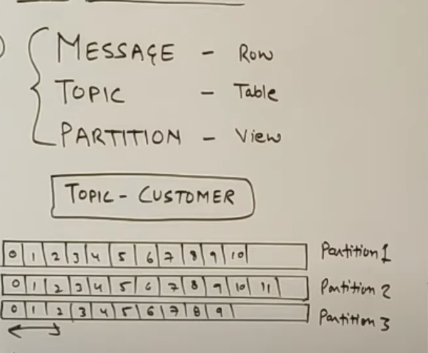 MESSAGE - Row
TOPIC - Table
PARTITION - View
TOPIC - CUSTOMER
0 1 2 3 4 5 6 7 8 9 10 Partition 1
0 1 2 3 4 5 6 7 8 9 10 11 Partition 2
0 1 2 3 4 5 6 7 8 9 Partition 3